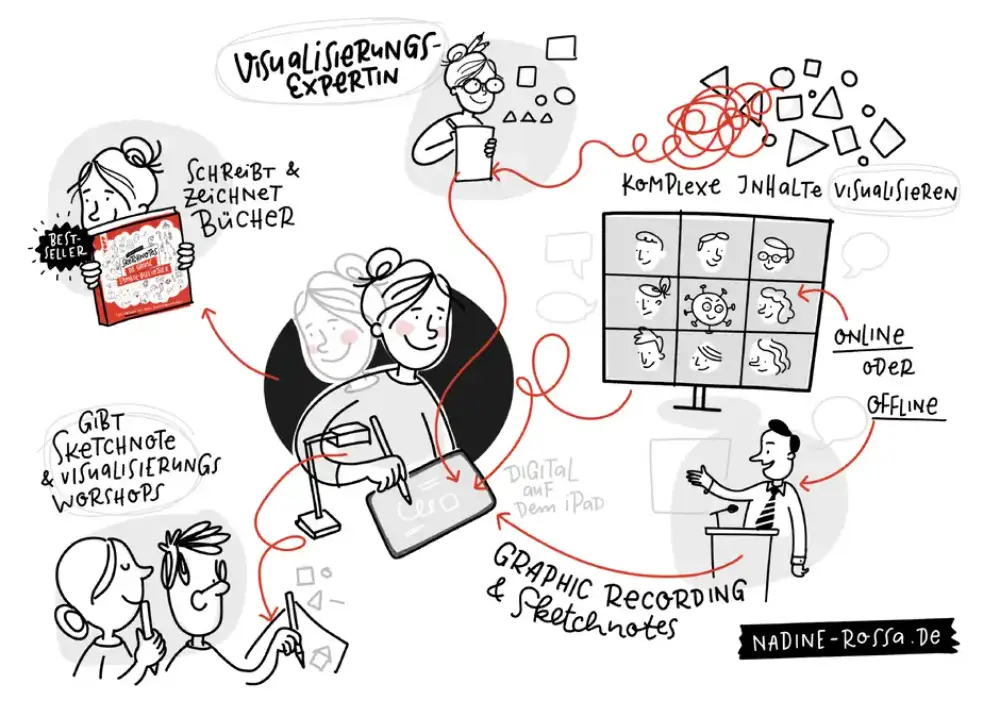 VISUALISIERUNGS-
EXPERTIN
SCHREIBT &
ZEICHNET
BÜCHER
BEST-
SELLER
SKETCHNOTES
KOMPLEXE INHALTE VISUALISIEREN
ONLINE
ODER
OFFLINE
GIBT
SKETCHNOTE
& VISUALISIERUNGS
WORSHOPS
DIGITAL
AUF
DEM iPAD
GRAPHIC RECORDING
& SKETCHNOTES
NADINE-ROSSA.DE